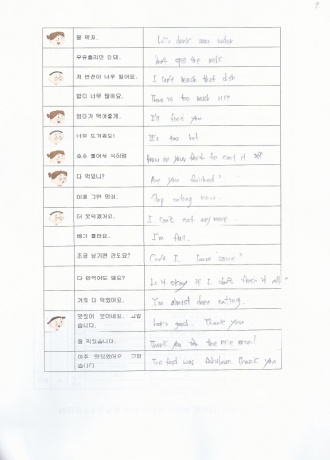 물 먹자.
Let's drink some water
우유흘리면 안돼.
Don't spill the milk
저 반찬이 너무 멀어요.
I can't reach that dish
밥이 너무 많아요.
There is too much rice
엄마가 먹여줄게.
I'll feed you
너무 뜨거워요!
It's too hot
호호 불어서 식혀줘
on your food to cool it
다 먹었니?
Are you finished?
이제 그만 먹어.
Stop eating now.
더 못먹겠어요.
I can't eat any more.
배가 불러요.
I'm full.
조금 남기면 안돼요?
Can't I leave some?
다 안먹어도 돼요?
Is it okay if I don't finish it all?
거의 다 먹었어요.
I'm almost done eating.
맛있어 보이네요.
습니다.
Looks good. Thank you
잘 먹었습니다.
Thank you for the nice meal!
아주 맛있었어요
합니다
The food was fabulous. Thank you